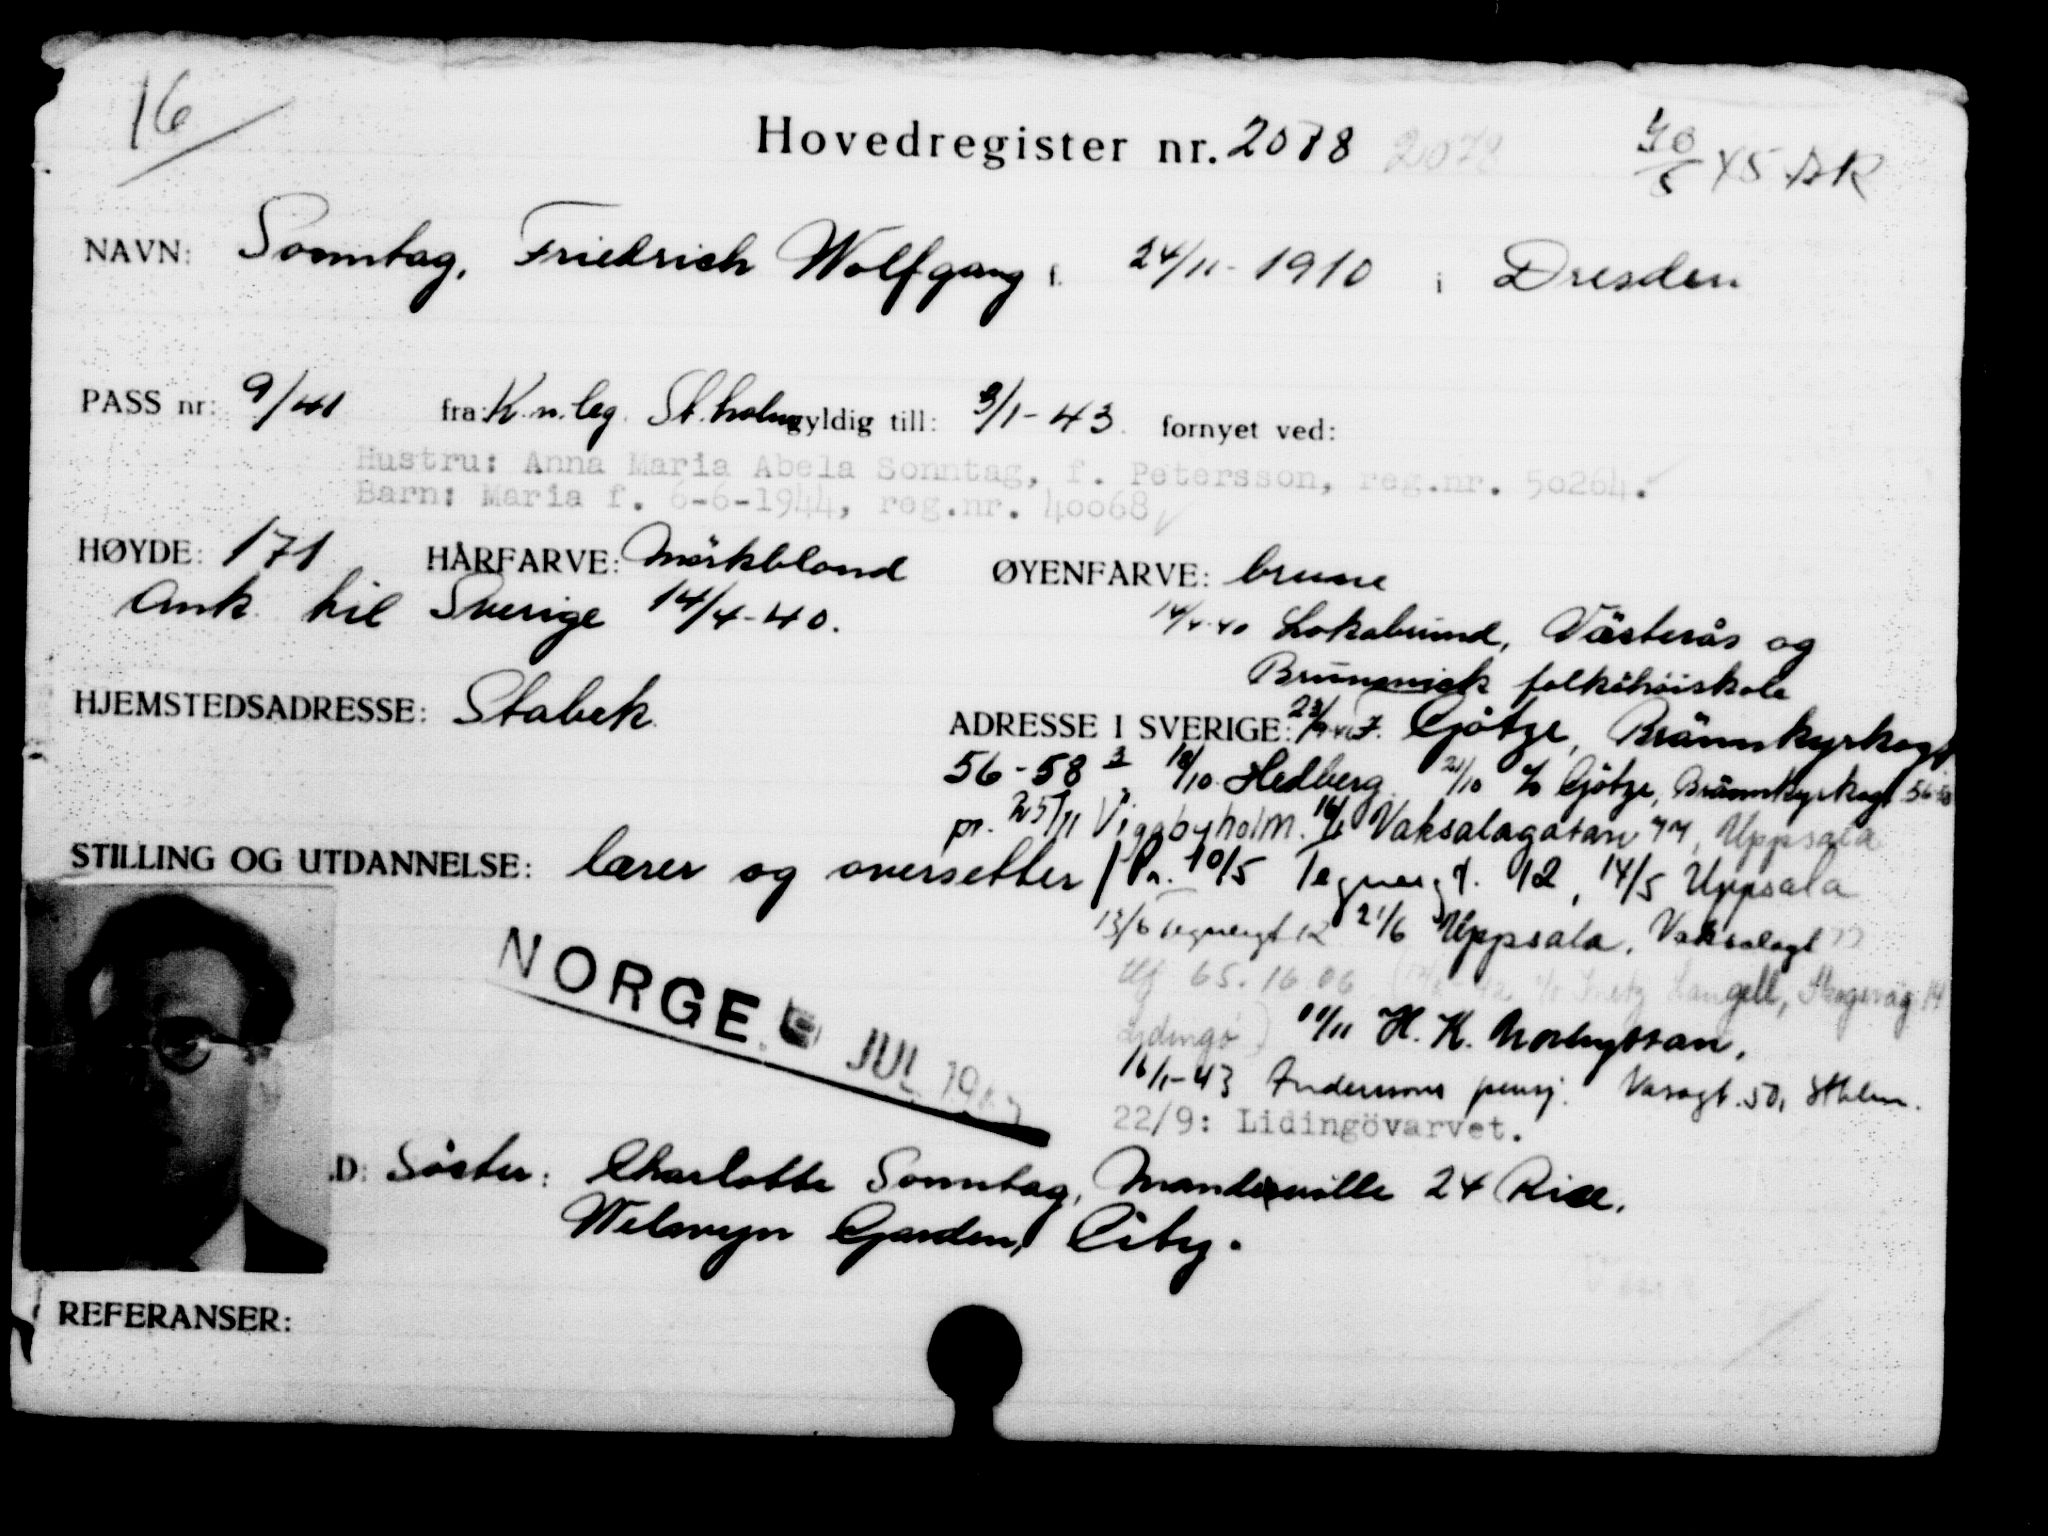 16
Hovedregister nr. 2078 2078
45
NAVN: Sonntag, Friedrich Wolfgang f. 24/11-1910 i Dresden
PASS nr: 9/41 fra: K.n.leg. St.holm gyldig till: 3/1-43 fornyet ved:
Hustru: Anna Maria Abela Sonntag, f. Petersson, reg.nr. 50264.
Barn: Maria f. 6-6-1944, reg.nr. 40068
HØYDE: 171 HÅRFARVE: Mörkblond ØYENFARVE: brune
Ank. til Sverige 14/4-40. 14/4-40 Lokabrund, Västerås og
Brunnsvick folkehöiskole
HJEMSTEDSADRESSE: Stabek ADRESSE I SVERIGE: F. Götze, Brännkyrkagt
56-58 3 18/10 Hedberg. 21/10 c/o Götze, Brännkyrkagt 56-58
pr. 25/11 Viggbyholm. Vaksalagatan 77, Uppsala
STILLING OG UTDANNELSE: lærer og oversetter / Pr. 10/5 Tegnergt. 12, 14/5 Uppsala
13/6 Tegnergt 12 21/6 Uppsala, Vaksalagt 77
tlf 65.16.06 Langell, Skogsväg 14
Lidingö) 11/11 H. K. Norhyttan,
16/1-43 Anderssons pensj. Vasagt. 50, Sthlm.
22/9: Lidingövarvet.
NORGE. JUL 194
.D: Söster: Charlotte Sonntag, Mandeville 24 Rise,
Welwyn Garden, City.
REFERANSER: